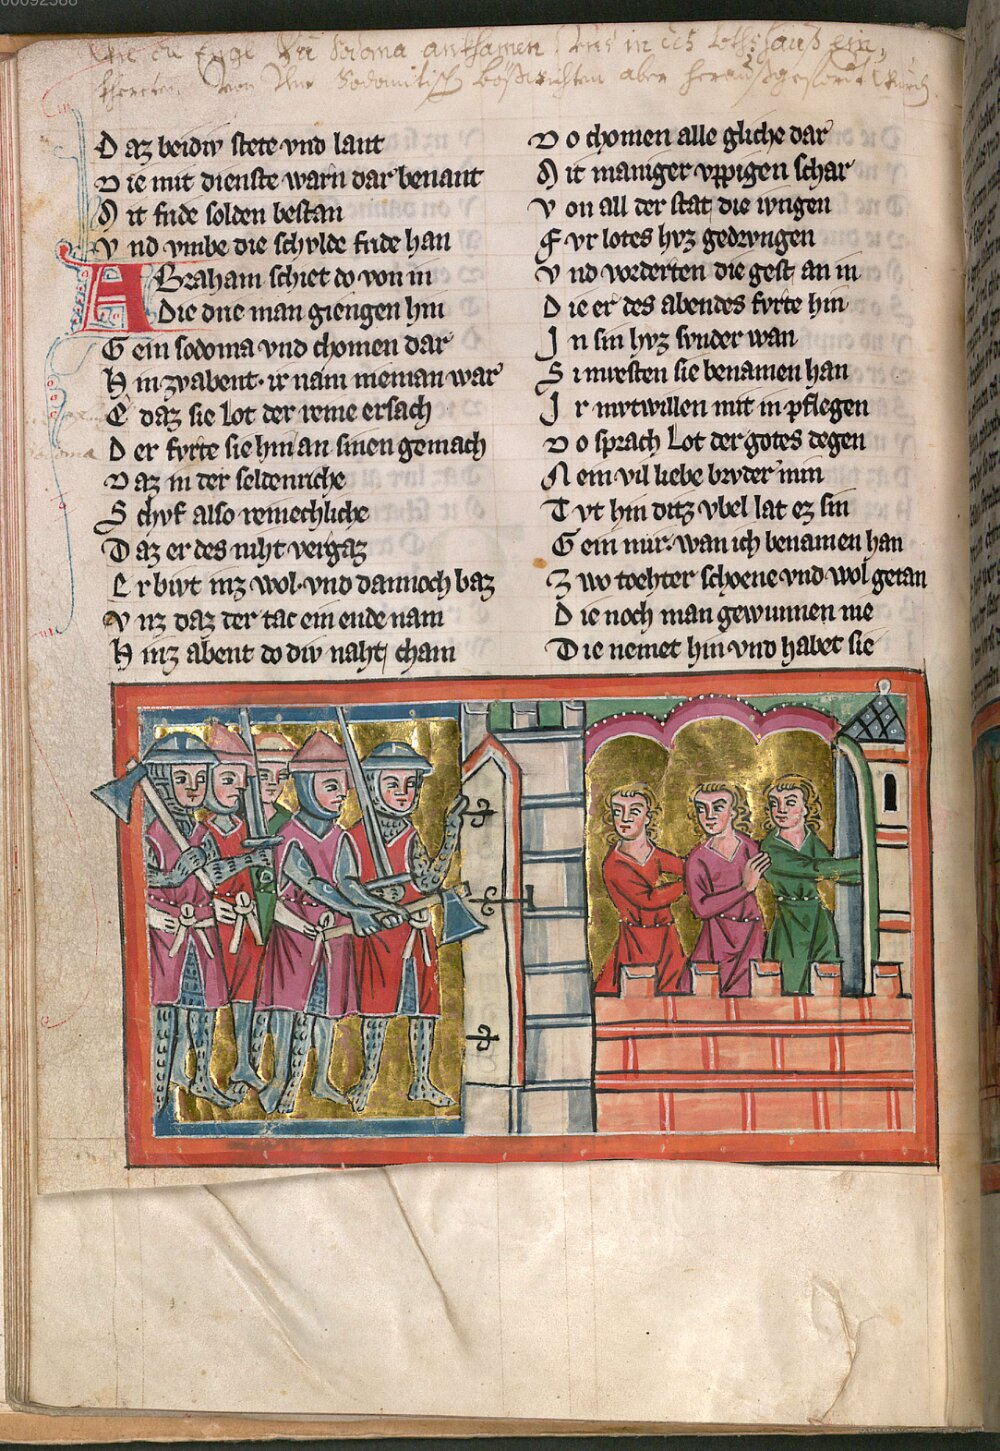 00092588
zu Sodoma ankhamen in des Loths hauß ein,
von den Sodomitisch aber
Daz beidiv stete vnd laut
Die mit dienste warn dar benant
Mit fride solden bestan
Vnd vmbe die schvlde fride han
ABraham schiet do von in
Die drie man giengen hin
Gein sodoma vnd chomen dar
Hinzv abent. ir nam nieman war
E daz sie Lot der reine ersach
Der fvrte sie hin an sinen gemach
Daz in der seldenriche
Schvf also reinechliche
Daz er des niht vergaz
Er bivt inz wol. vnd dannoch baz
Vnz daz der tac ein ende nam
Hinz abent do div naht cham
Do chomen alle gliche dar
Mit maniger vppigen schar
Von all der stat die ivngen
Fvr lotes hvz gedrvngen
Vnd vorderten die gest an in
Die er des abendes fvrte hin
In sin hvz svnder wan
Si mvesten sie benamen han
Ir mvtwillen mit in pflegen
Do sprach Lot der gotes degen
Nein vil liebe brvder min
Tvt hin ditz vbel lat ez sin
Gein mir. wan ich benamen han
Zwo toehter schoene vnd wol getan
Die noch man gewunnen nie
Die nemet hin vnd habet sie